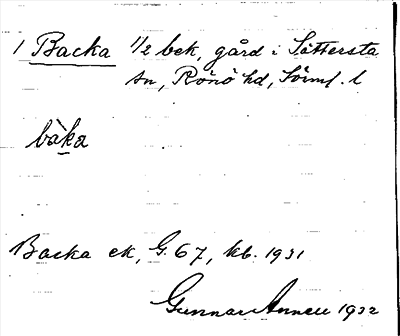 1 Backa 1/2 bek, gård i Sättersta
sn, Rönö hd, Sörml. l
bàka
Backa ek, G. 67, kb. 1931
Gunnar Anneu 1932